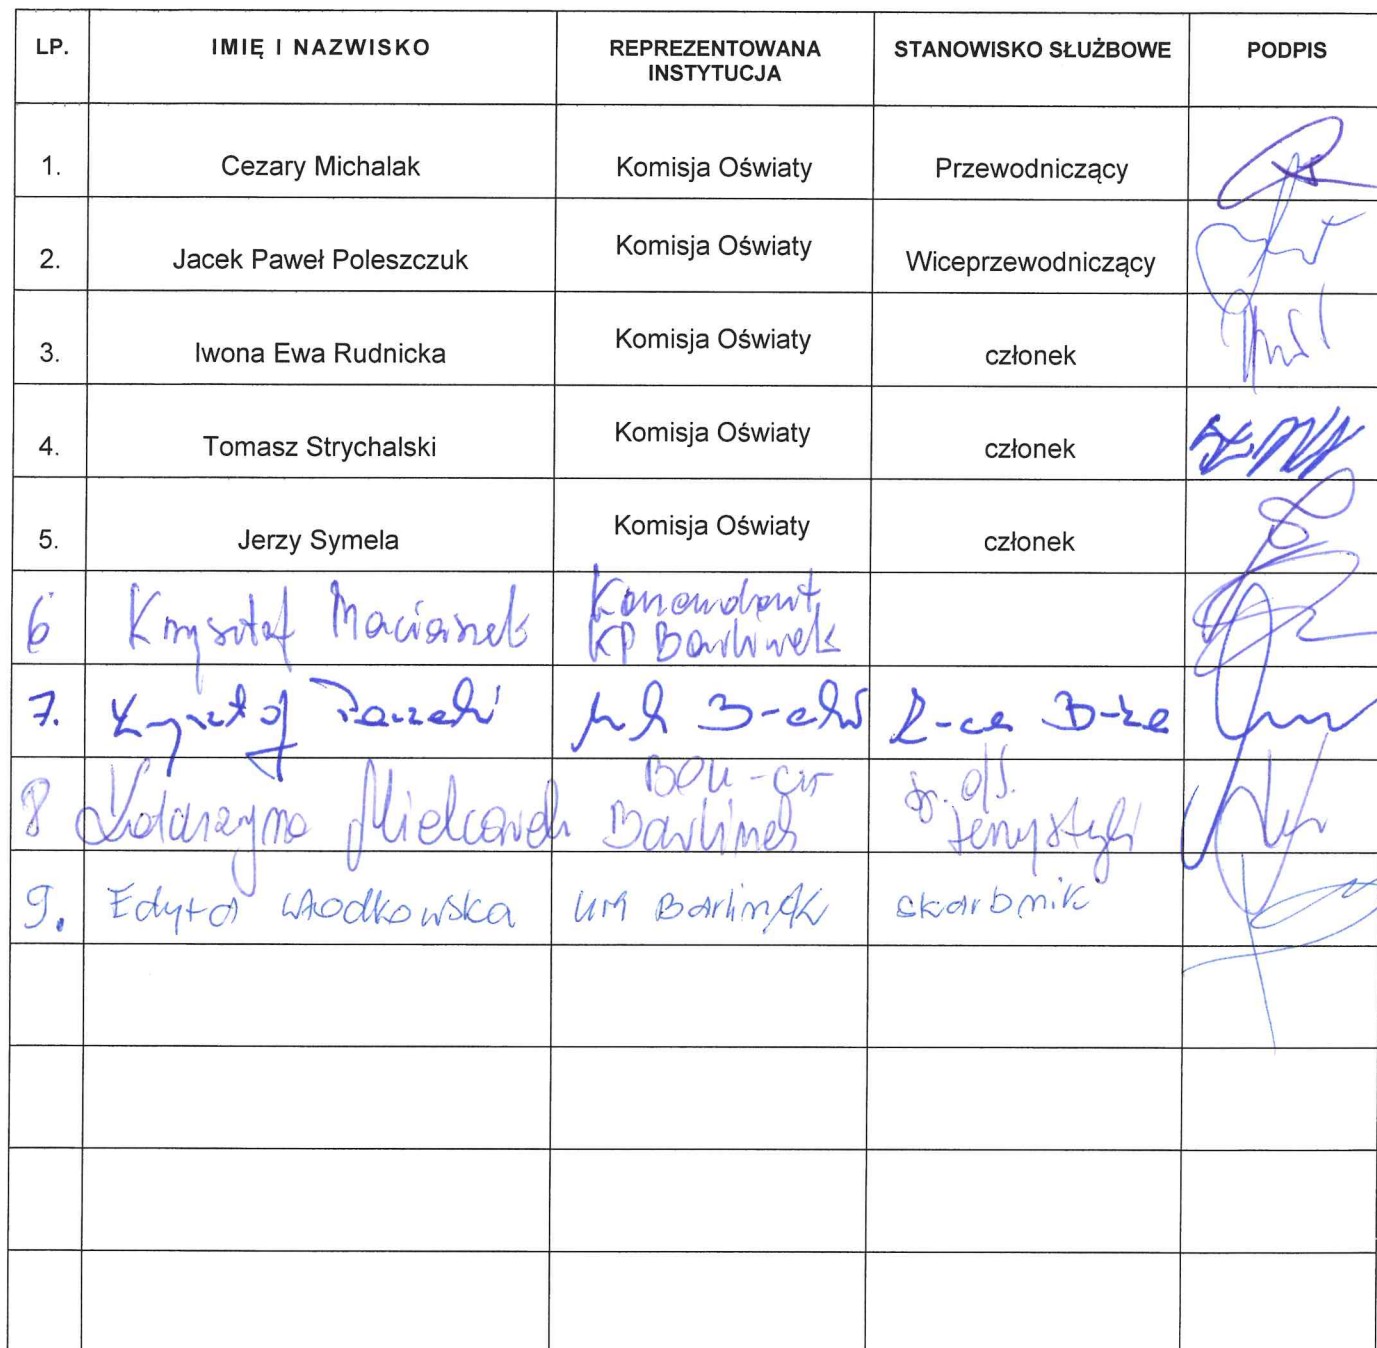 LP. IMIĘ I NAZWISKO REPREZENTOWANA INSTYTUCJA STANOWISKO SŁUŻBOWE PODPIS
1. Cezary Michalak Komisja Oświaty Przewodniczący
2. Jacek Paweł Poleszczuk Komisja Oświaty Wiceprzewodniczący
3. Iwona Ewa Rudnicka Komisja Oświaty członek
4. Tomasz Strychalski Komisja Oświaty członek
5. Jerzy Symela Komisja Oświaty członek
6 Krzysztof Maciaszek Komendant
KP Barlinek
7. Krzysztof Z-ca B-rza
8 Katarzyna Mielcarek Barlinek
9. Edyta Włodkowska UM Barlinek skarbnik